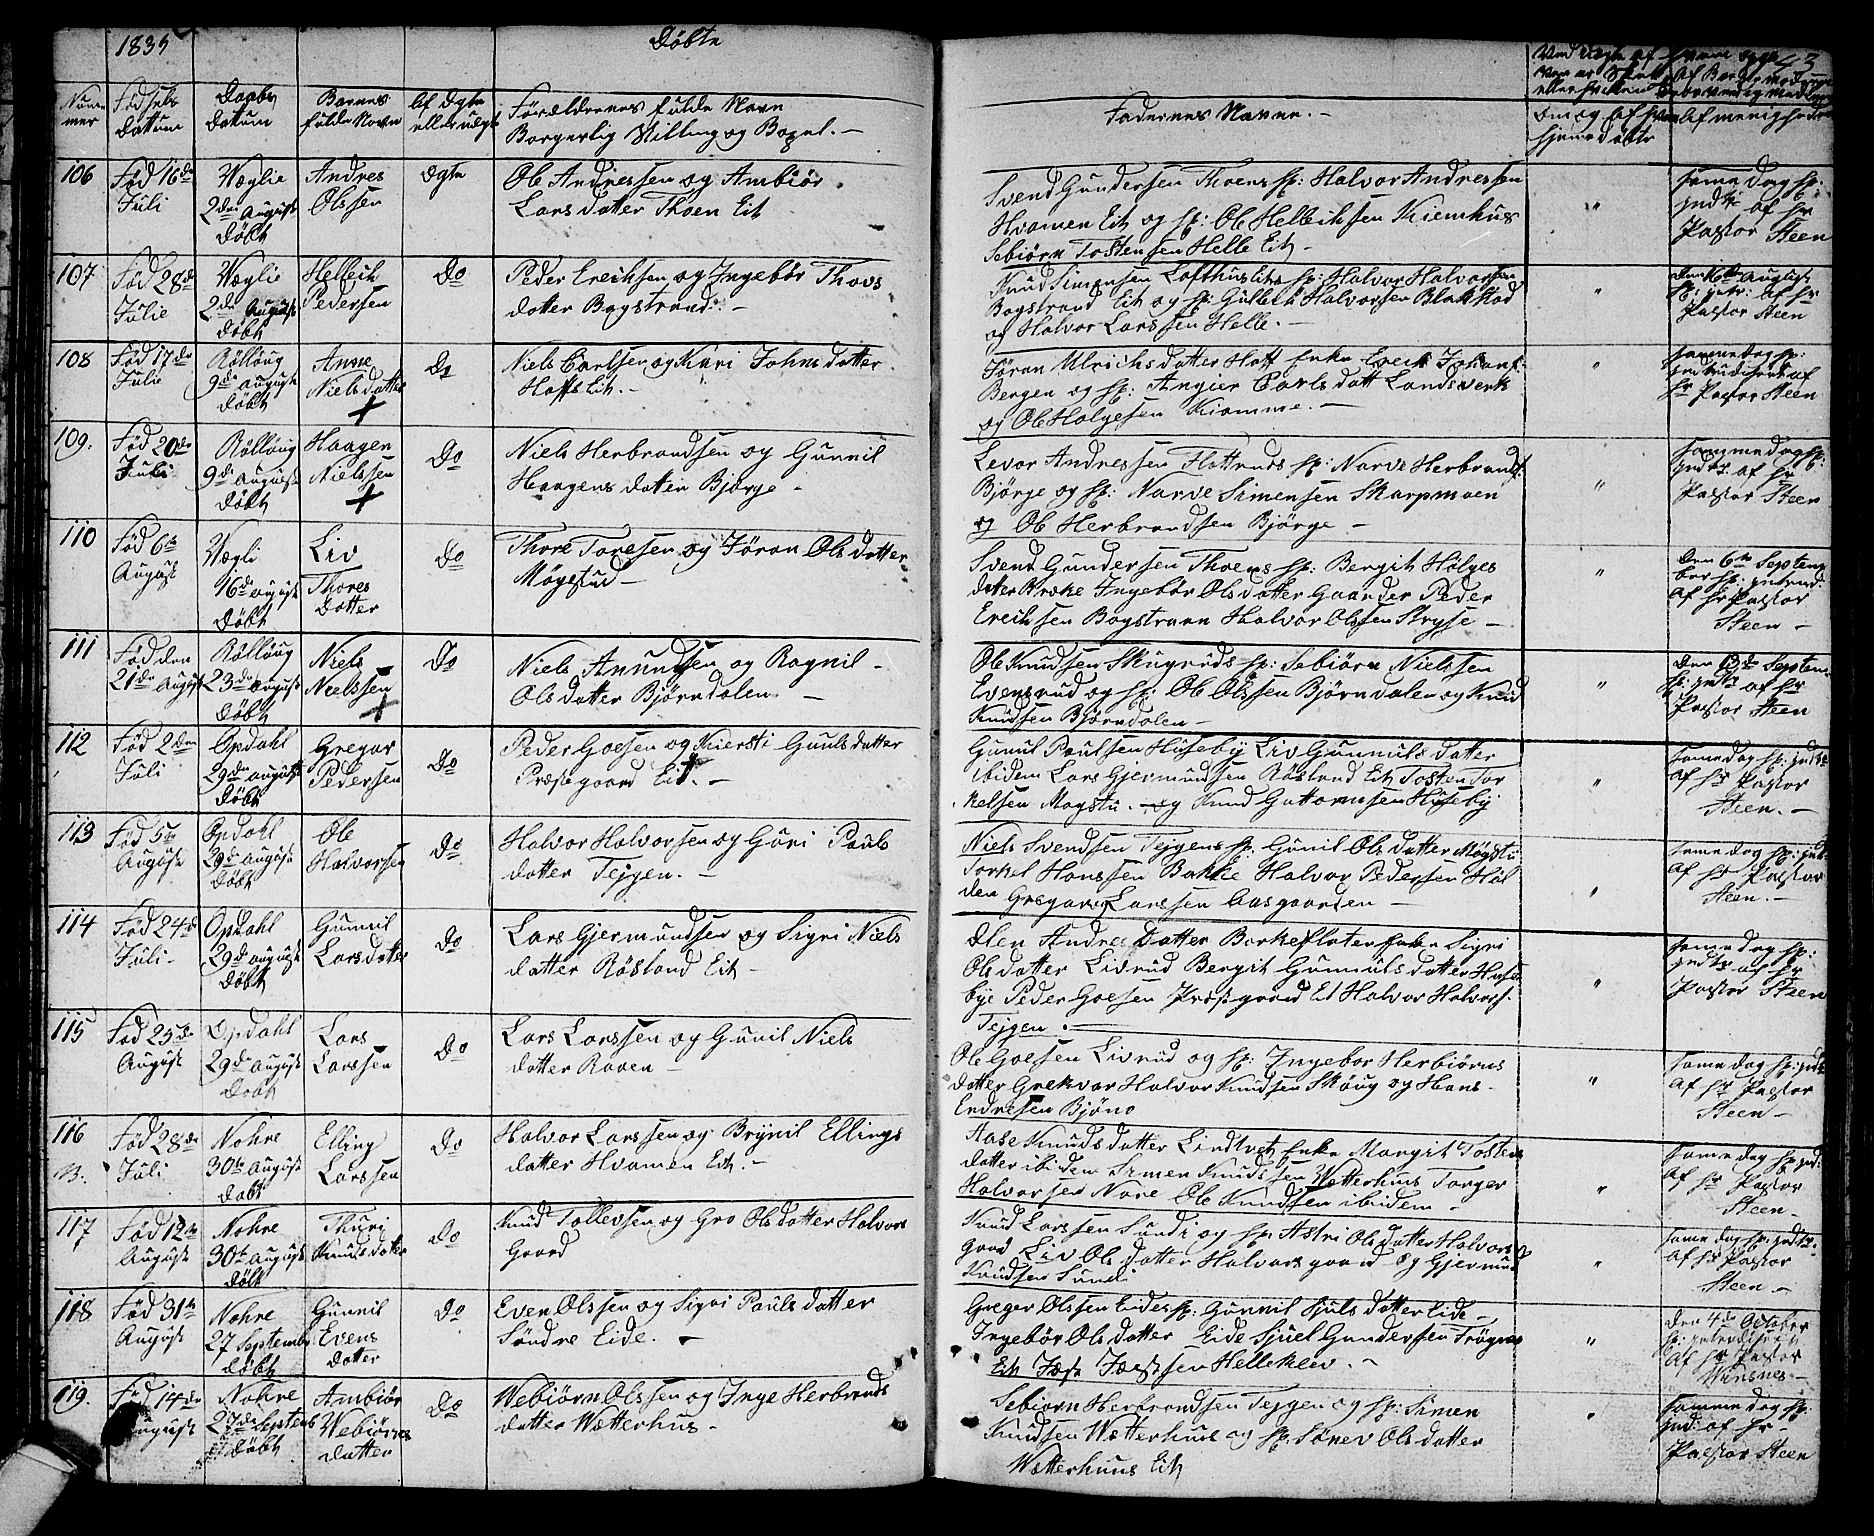 1835
Døbte
43
Num-
mer
Fødsels
Dattum
Daabs
Datum
Barnets
fulde Navn
Af Ægte
eller uægt
Forældrenes fulde Navn
Borgerlig Stilling og Bopæl. -
Faddernes Navne. -
om og af hvem
hjemedøbte
106
Fød 16de
Juli
Væglie
2den August
Døbt
Andres
Olssen
Ægte
Ole Andressen og Ambiør
Lars datter Thoen Eit
Svend Gundersen Thoens sp: Halvor Andressen
Hvamen Eit og sp: Ole Helleiksen Kiemhus
Sebiørn Tostensen Helle Eit -
"
samme dag sp:
indtr af Hr
Pastor Steen
107
Fød 28de
Julie
Væglie
2de August
Døbt
Helleik
Pedersen
Do
Peder Erichsen og Ingebør Thovs
datter Bogstrand. -
Knud Simonsen Lofthus Eits sp: Halvor Halvorsen
Bogstrand Eit og sp: Gulleik Halvorsen Blakstad
og Halvor Larssen Helle. -
"
den 16de August
sp: intr: af Hr
Pastor Steen
108
Fød 17de
Julie
Rølloug
9de August
Døbt
Anne
Niels datter
+
Do
Niels Carlsen og Kari Johns datter
Hoffs Eit. -
Jøran Ulrichs datter Hoff Enke Erek Johans
Bergen og sp: Angier Carls datt Landsverk
og Ole Holgesen Kiomme. -
"
samme dag sp:
introduceret af
Hr Pastor Steen
109.
Fød 20de
Juli
Rølloug
9de August
Døbt
Haagen
Nielssen
+
Do
Niels Herbrandsen og Gunnil
Haagens datter Bjørge -
Levor Andressen Flattruds sp: Narve Herbrands
Bjørge og sp: Narve Simensen Skarpmoen
og Ole Herbrandsen Bjørge -
"
sammedag sp:
indtr. af Hr
Pastor Steen
110
Fød 6te
August
Vægli
16de August
Døbt
Liv
Thores
datter
Do
Thore Toresen og Jøran Ols datter
Møgestud -
Svend Gundersen Thoens sp: Bergit Holges
datter Ingebør Ols datter Gaarder Peder
Erichsen Bogstrann Halvor Olssen Stryse -
"
den 6te Septem
ber sp: introd:
af Hr Pastor
Steen -
111
Fød den
21de August
Rølloug
23de August
Døbt
Niels
Nielssen
+
Do
Niels Anundsen og Ragnil -
Ols datter Bjørndalen -
Ole Knudsen Skugruds sp: Sebiørn Nielssen
Evensrud og sp: Ole Olssen Bjørndalen og Knud
Knudsen Bjørndalen -
"
den 13de Septem
sp: indtr af Hr
Pastor Steen
112
Fød 2den
Juli
Opdahl
29de August
Døbt
Gregar
Pedersen
Do
Peder Goesen og Kiersti Gunls datter
Præstegaard Eit. -
Gunul Paulsen Huseby Liv Gunnuls datter
ibidem Lars Gjermundsen Røsland Eit Tosten Tor
kelsen Mogstu. - og Knud Guttormsen Huseby
"
samme dag sp: indtr
af Hr Pastor
Steen. -
113
Fød 5te
August
Opdahl
29de August
Døbt
Ole
Halvorsen
Do
Halvor Halvorsen og Guri Pauls
datter Tejgen. -
Niels Svendsen Tejgens sp: Gunil Ols datter Mogstu
Torkel Hanssen Bakke Halvor Pedersen Hol
den Gregar Larssen Aasgaarden -
"
samme dag sp: ind
af Hr Pastor
Steen. -
114
Fød 24de
Juli -
Opdahl
29de August
Døbt
Gunnil
Lars datter
Do
Lars Gjermundsen og Sigri Niels
datter Røsland Eit -
Olen Andres Datter Borkeflaten Enke Sigri
Ols datter Livrud Bergit Gunnuls datter Huse
bye Peder Goesen Præstegaard Et Halvor Halvors.
Tejgen. -
"
samme dag sp:
indtr af Hr
Pastor Steen
115
Fød 25de
August
Opdahl
29de August
Døbt
Lars
Larssen
Do
Lars Larssen og Gunil Niels
datter Raaen -
Ole Goesen Livrud og sp: Ingebor Herbiørns
datter Grekvar Halvor Knudsen Skoug og Hans
Endresen Bjøno
"
samme dag sp: ind
af Hr Pastor
Steen -
116
Fød 28de
Juli
Nohre
30te August
Døbt
Elling
Larssen
Do
Halvor Larssen og Brynil Ellings
datter Hvamen Eit. -
Aase Knuds datter Lindtvet Enke Margit Tostens
datter ibidem Simen Knudssen Wætterhuus Torger
Halvorsen Nore Ole Knudsen ibidem -
"
samme dag sp ind:
af Hr Pastor
Steen -
117
Fød 12te
August
Nohre
30te August
Døbt
Thuri
Knuds datter
Do
Knud Tollevsen og Gro Ols datter Halvors
Gaard
Knud Larssen Sundi og sp: Astri Ols datter Halvors
gaard Liv Ols datter Halvorsgaard og Gjermund
Knudsen Sundi
"
samme dag sp: indtr:
af Hr Pastor
Steen -
118
Fød 31te
August
Nohre
27 Septembr
Døbt
Gunnil
Evens
datter
Do
Even Olssen og Sigri Pauls datter
Søndre Eide. -
Greger Olssen Eides sp: Gunnil Sjuls datter Eide -
Ingebør Ols datter Eide Sjuel Gundersen Frøgnes
Eit Jæst Jærstsen Helleklev. -
"
den 4de October
sp: introduceret
af Hr Pastor
Winsnes -
119.
Fød 14de
August
Nohre
27de Septemb
Døbt
Ambiør
Webiørns
datter
Do
Webiørn Olssen og Inge Herbrands
datter Wætterhus -
Sebiørn Herbrandsen Tejgen og sp: Simen
Knudsen Wætterhus og sp: Sønev Ols datter
Wætterhuus Eit
"
samme dag sp:
ind: af Hr -
Pastor Steen